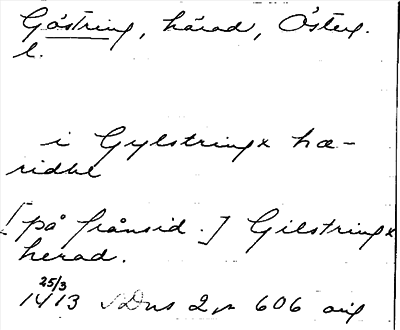 Göstring, härad, Österg.
l.
i Gylstringx hæ-
ridhe
[på frånsid.] Gilstringx
herad.
25/3
1413 SDns 2, 606 orig